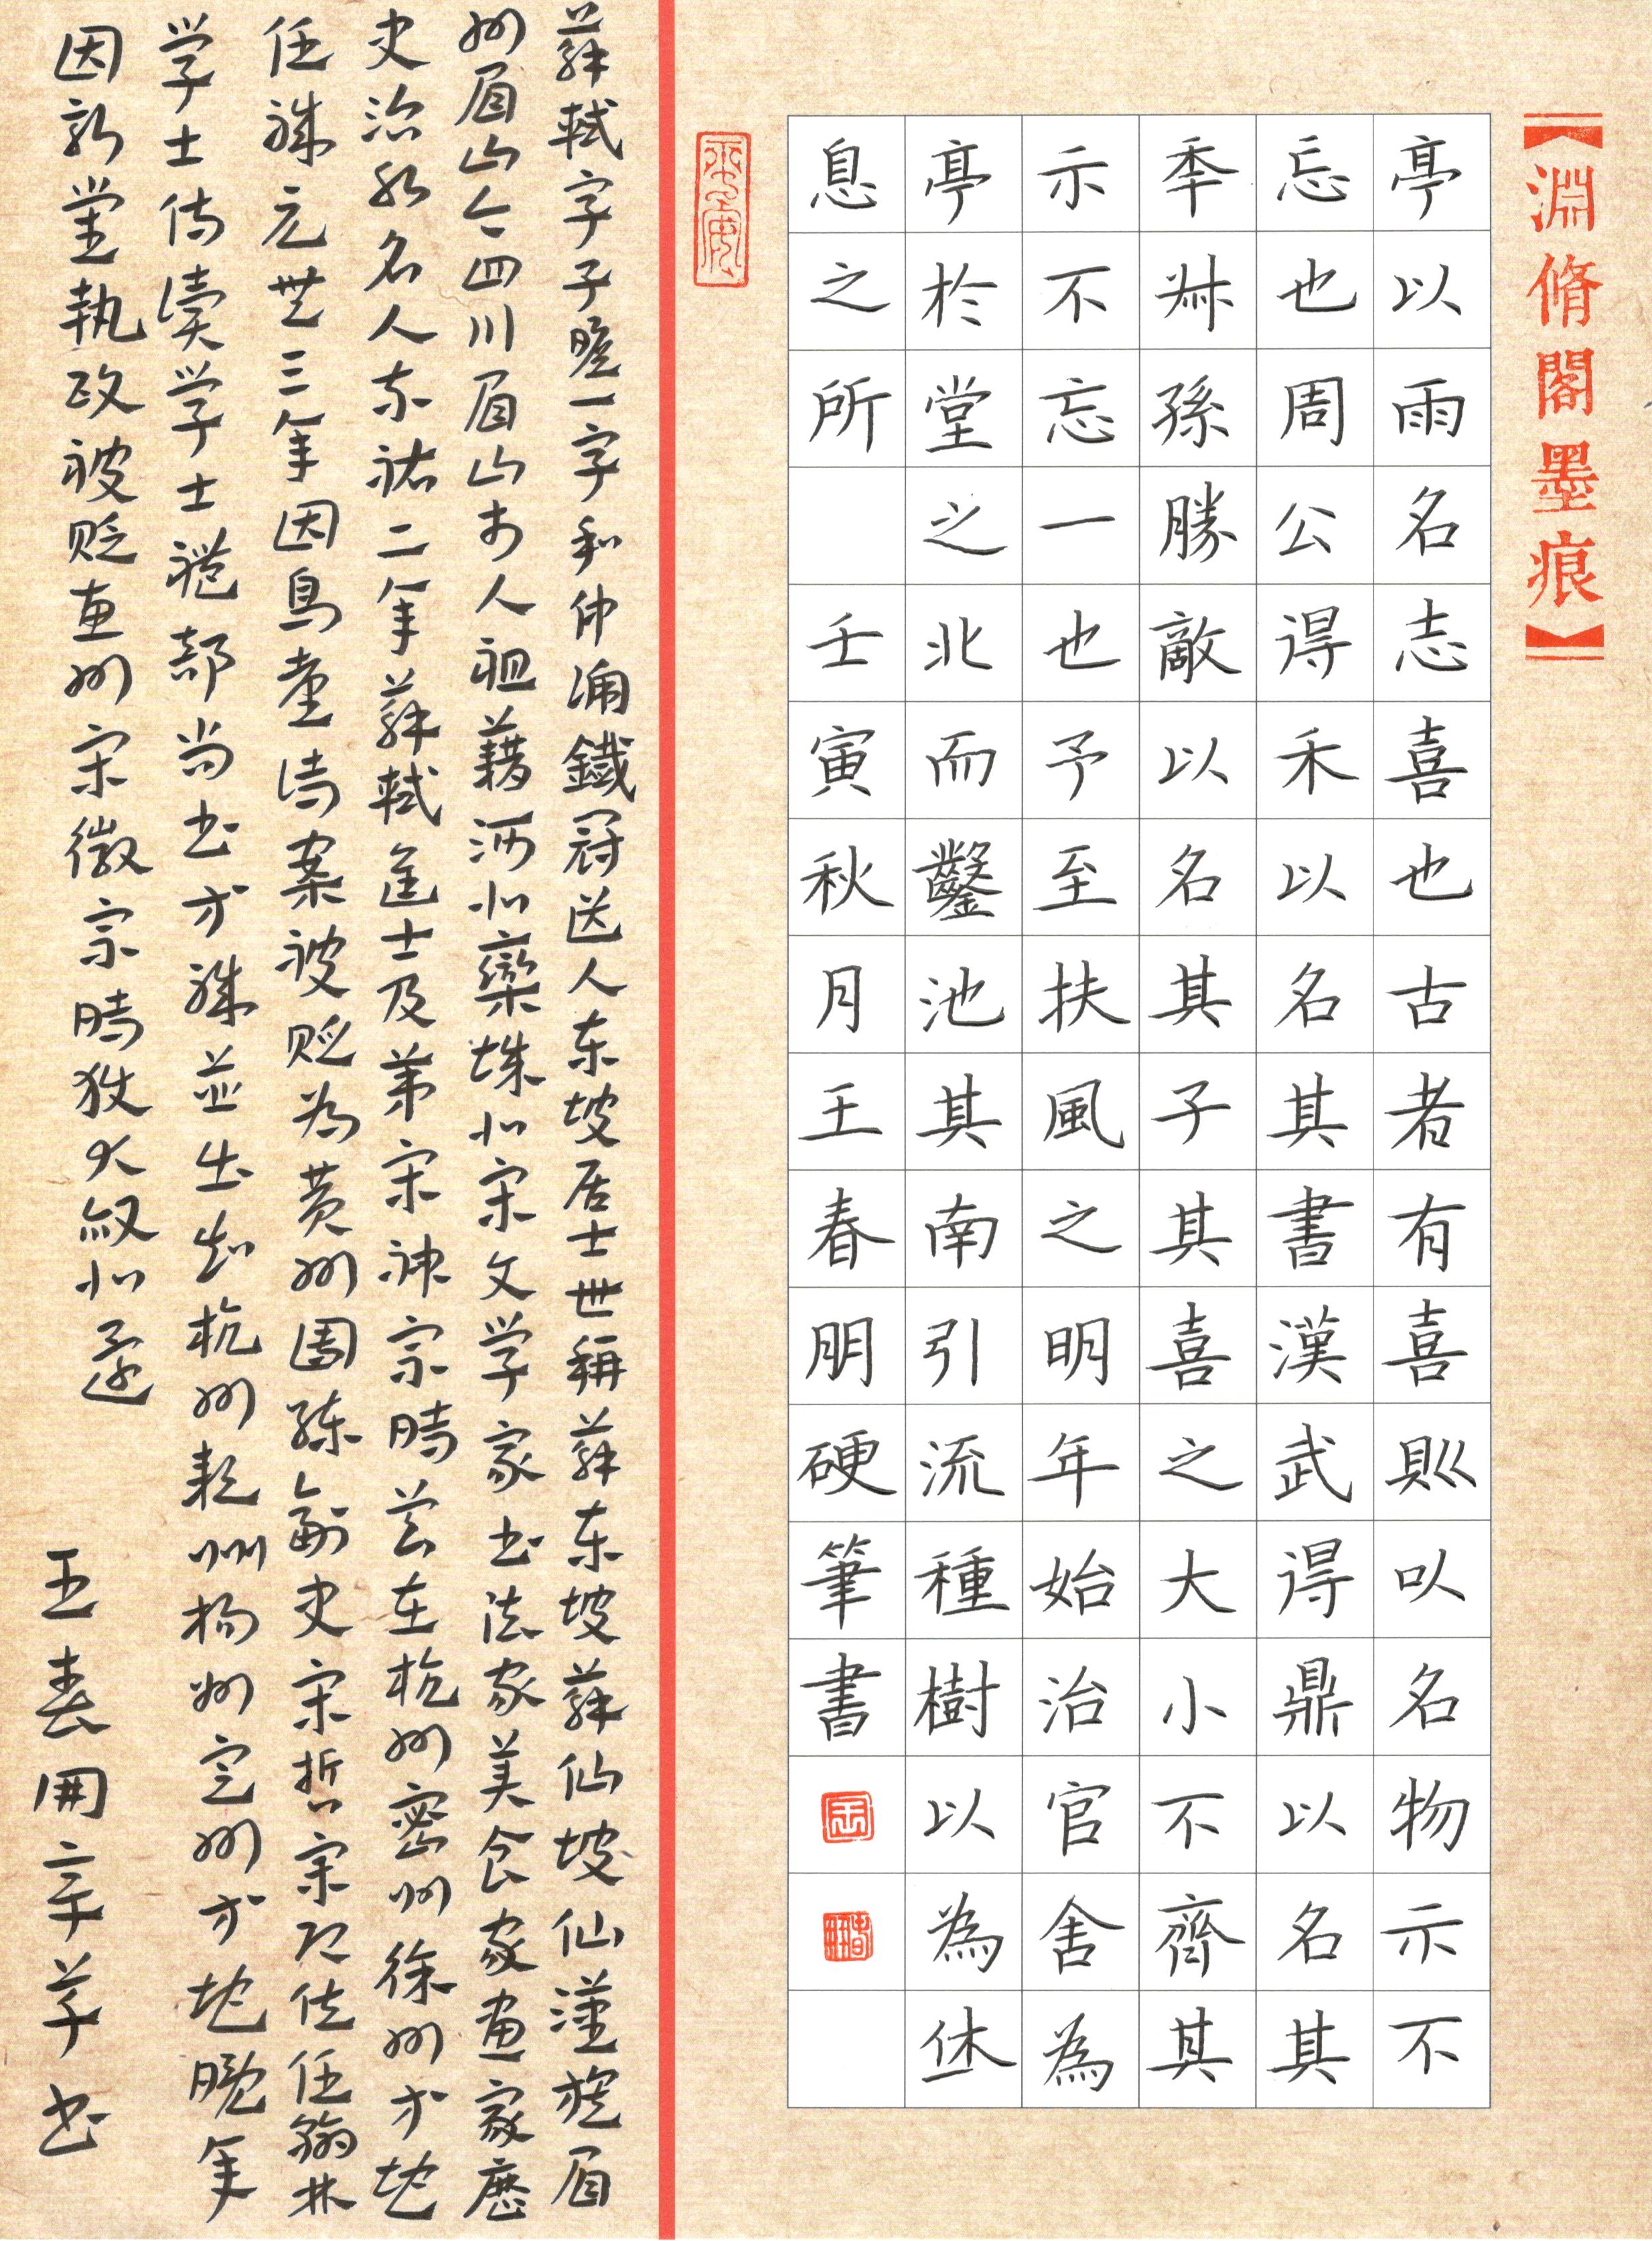 【淵脩閣墨痕】
亭以雨名志喜也古者有喜則以名物示不
忘也周公得禾以名其書漢武得鼎以名其
季叔孫勝敵以名其子其喜之大小不齊其
示不忘一也予至扶風之明年始治官舍為
亭於堂之北而鑿池其南引流種樹以為休
息之所 壬寅秋月王春朋硬筆書
蘇軾字子瞻一字和仲鐵冠送人东坡居士世稱蘇东坡蘇仙坡仙漢族眉
州眉山今四川眉山市人祖藉河北欒城北宋文学家书法家美食家畫家歷
史治水名人嘉祐二年蘇軾進士及第宋神宗時曾在杭州密州徐州才地
任職元豐三年因烏臺诗案被贬为黄州團练副史宋哲宗即位任翰林
学士侍读学士禮部尚书才職並出知杭州颖州杨州定州才地晚年
因新黨執政被贬惠州宋徽宗時获大赦北還
王春朋章草书